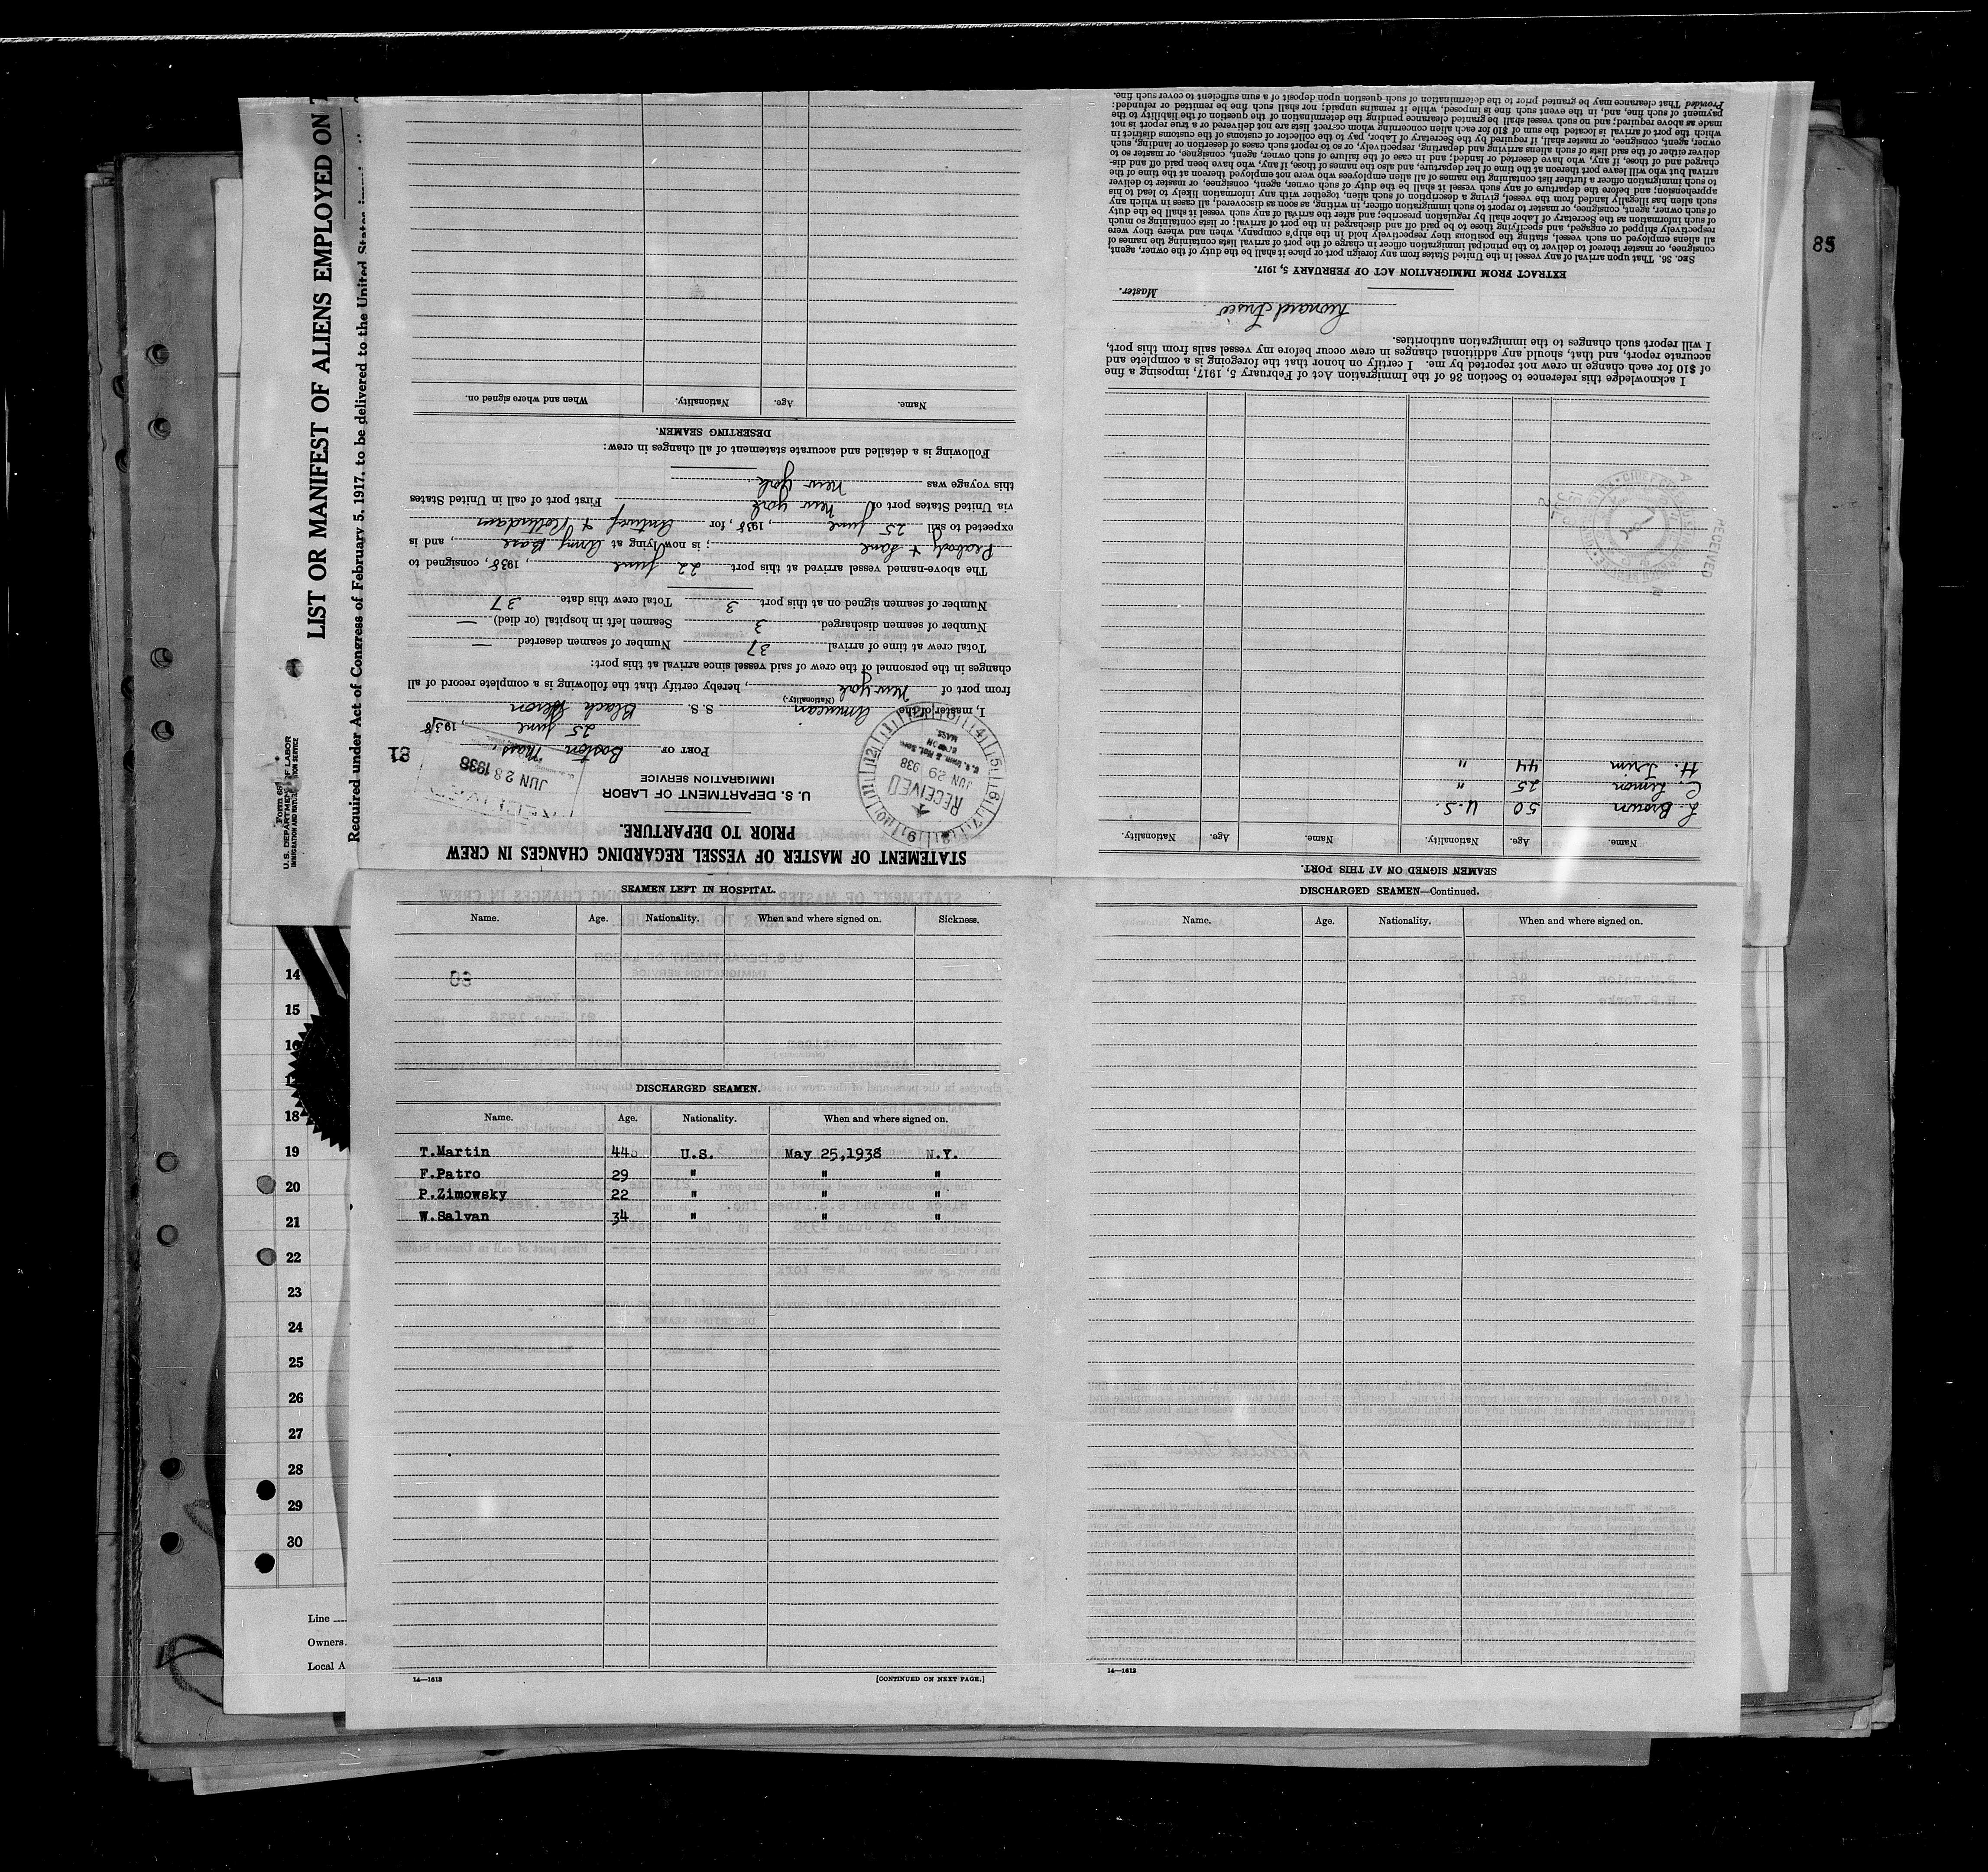 LIST OR MANIFEST OF ALIENS EMPLOYED ON
Required under Act of Congress of February 5, 1917, to be delivered to the United States
U.S. DEPARTMENT OF LABOR
IMMIGRATION AND NATURALIZATION SERVICE
85
81
STATEMENT OF MASTER OF VESSEL REGARDING CHANGES IN CREW
PRIOR TO DEPARTURE.
U. S. DEPARTMENT OF LABOR
IMMIGRATION SERVICE
RECEIVED
JUN 29 1938
BOSTON
MASS.
JUN 28 1938
PORT OF Boston Mass,
25 June, 1938
I, master of the American S. S. Black Heron
(Nationality.)
from port of New York, hereby certify that the following is a complete record of all
changes in the personnel of the crew of said vessel since arrival at this port:
Total crew at time of arrival 37 Number of seamen deserted —
Number of seamen discharged 3 Seamen left in hospital (or died) —
Number of seamen signed on at this port 3 Total crew this date 37
The above-named vessel arrived at this port 22 June, 1938, consigned to
Peabody & Lane; is now lying at Army Base, and is
expected to sail 25 June, 1938, for Antwerp & Rotterdam
via United States port of New York First port of call in United States
this voyage was New York
Following is a detailed and accurate statement of all changes in crew:
DESERTING SEAMEN.
Name. Age. Nationality. When and where signed on.
SEAMEN SIGNED ON AT THIS PORT.
Name. Age. Nationality. Name. Age. Nationality.
L. Brown 50 U.S.
C. Limon 25 "
H. Irim 44 "
I acknowledge this reference to Section 36 of the Immigration Act of February 5, 1917, imposing a fine
of $10 for each change in crew not reported by me. I certify on honor that the foregoing is a complete and
accurate report, and that, should any additional changes in crew occur before my vessel sails from this port,
I will report such changes to the immigration authorities.
Leonard Frisco
Master.
EXTRACT FROM IMMIGRATION ACT OF FEBRUARY 5, 1917.
SEC. 36. That upon arrival of any vessel in the United States from any foreign port or place it shall be the duty of the owner, agent,
consignee, or master thereof to deliver to the principal immigration officer in charge of the port of arrival lists containing the names of
all aliens employed on such vessel, stating the positions they respectively hold in the ship's company, when and where they were
respectively shipped or engaged, and specifying those to be paid off and discharged in the port of arrival; or lists containing so much
of such information as the Secretary of Labor shall by regulation prescribe; and after the arrival of any such vessel it shall be the duty
of such owner, agent, consignee, or master to report to such immigration officer, in writing, as soon as discovered, all cases in which any
such alien has illegally landed from the vessel, giving a description of such alien, together with any information likely to lead to his
apprehension; and before the departure of any such vessel it shall be the duty of such owner, agent, consignee, or master to deliver
to such immigration officer a further list containing the names of all alien employees who were not employed thereon at the time of the
arrival but who will leave port thereon at the time of her departure, and also the names of those, if any, who have been paid off and dis-
charged and of those, if any, who have deserted or landed; and in case of the failure of such owner, agent, consignee, or master so to
deliver either of the said lists of such aliens arriving and departing, respectively, or so to report such cases of desertion or landing, such
owner, agent, consignee, or master shall, if required by the Secretary of Labor, pay to the collector of customs of the customs district in
which the port of arrival is located the sum of $10 for each alien concerning whom correct lists are not delivered or a true report is not
made as above required; and no such vessel shall be granted clearance pending the determination of the question of the liability to the
payment of such fine, and, in the event such fine is imposed, while it remains unpaid; nor shall such fine be remitted or refunded:
Provided That clearance may be granted prior to the determination of such question upon deposit of a sum sufficient to cover such fine.
SEAMEN LEFT IN HOSPITAL.
Name. Age. Nationality. When and where signed on. Sickness.
DISCHARGED SEAMEN.
Name. Age. Nationality. When and where signed on.
T.Martin 44 U.S. May 25,1938 N.Y.
F.Patro 29 " " "
P.Zimowsky 22 " " "
W.Salvan 34 " " "
14—1613 [CONTINUED ON NEXT PAGE.]
DISCHARGED SEAMEN—Continued.
Name. Age. Nationality. When and where signed on.
14—1613
14
15
16
18
19
20
21
22
23
24
25
26
27
28
29
30
Line
Owners
Local A